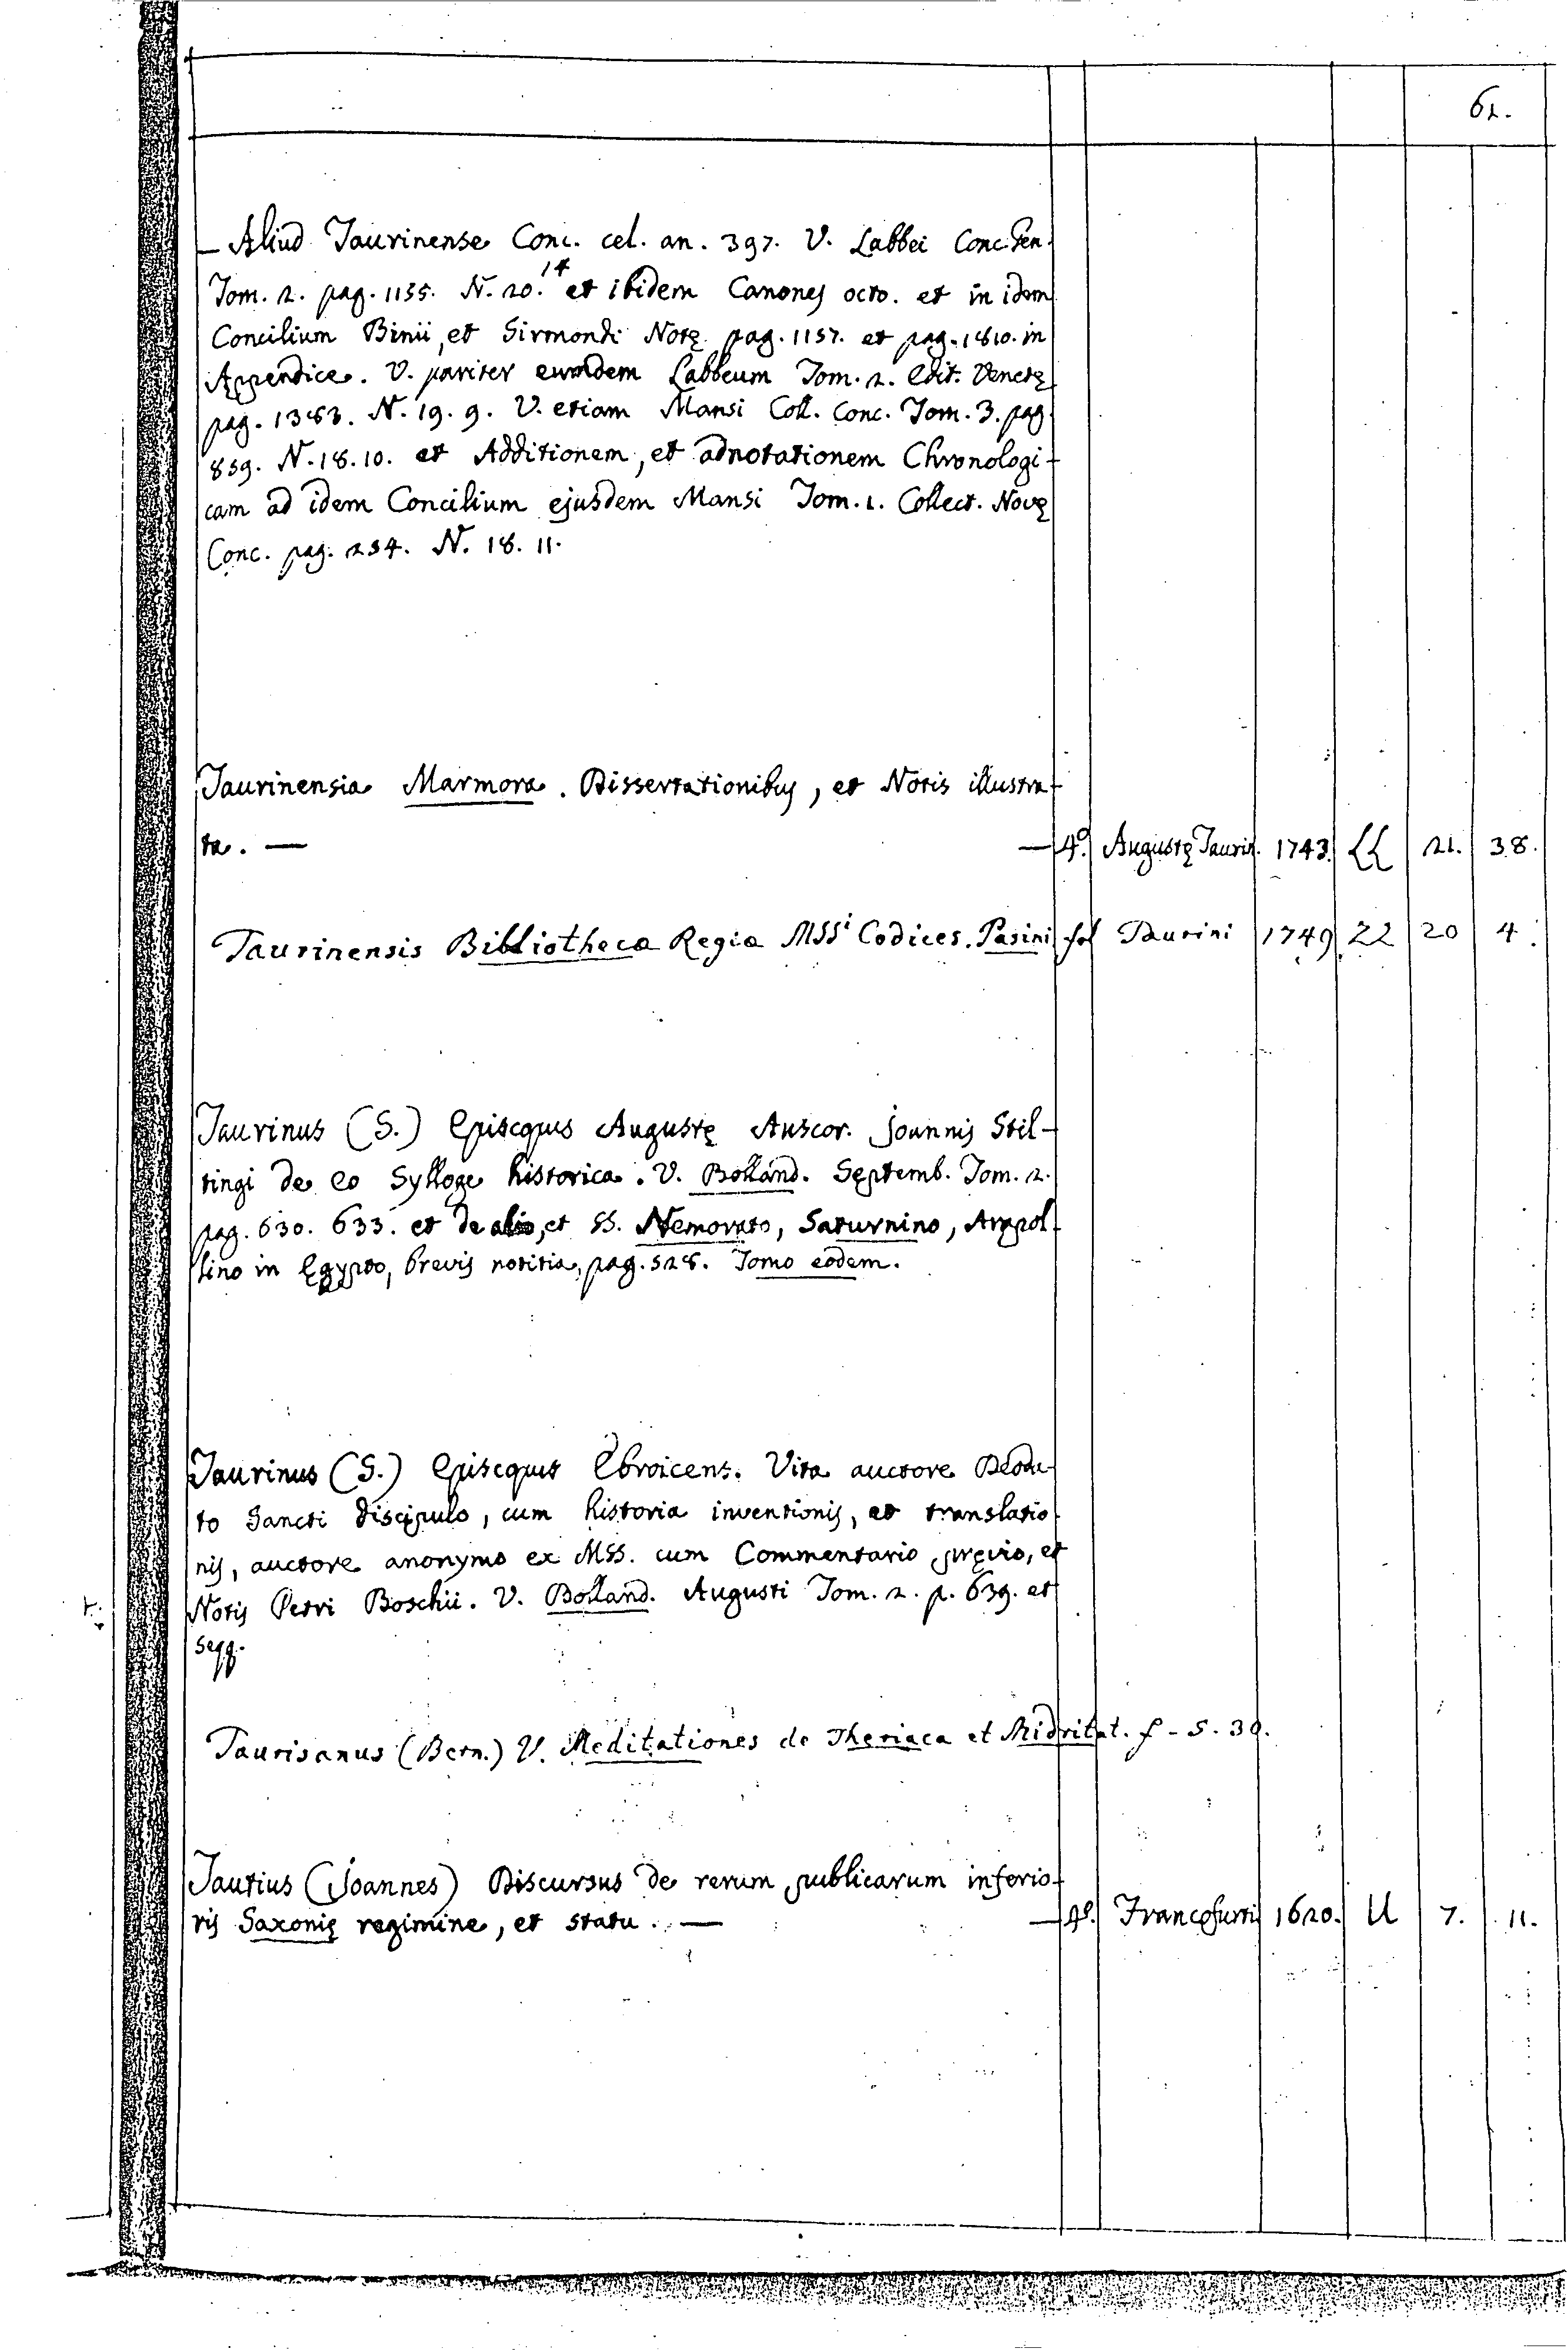 61.
— Aliud Taurinense Conc. cel. an. 397. V. Labbei Conc. Gen.
Tom. 2. pag. 1155. N. 20. 14 et ibidem Canones octo. et in idem
Concilium Binii, et Sirmondi Notę pag. 1157. et pag. 1810. in
Appendice. V. pariter eumdem Labbeum Tom. 2. edit. Venetę
pag. 1383. N. 19. 9. V. etiam Mansi Coll. Conc. Tom. 3. pag.
859. N. 18. 10. et Additionem, et adnotationem Chronologi-
cam ad idem Concilium ejusdem Mansi Tom. 1. Collect. Novę
Conc. pag. 254. N. 18. 11.
Taurinensia Marmora. Dissertationibus, et Notis illustra-
ta. — — 4º. Augustę Taurin. 1743. LL 21. 38.
Taurinensis Bibliotheca Regia MSSi Codices. Pasini fol Taurini 1749 22 20 4.
Taurinus (S.) Episcopus Augustę Auscor. Joannis Stil-
tingi de eo Sylloge historica. V. Bolland. Septemb. Tom. 2.
pag. 630. 633. et de alio, et SS. Nemorato, Saturnino, Arapol-
lino in Egypto, brevis notitia, pag. 528. Tomo eodem.
Taurinus (S.) Episcopus Ebroicens. Vita auctore Deoda-
to Sancti discipulo, cum historia inventionis, et translatio-
nis, auctore anonymo ex MSS. cum Commentario pręvio, et
Notis Petri Boschii. V. Bolland. Augusti Tom. 2. p. 639. et
seqq.
Taurisanus (Bern.) V. Meditationes de Theriaca et Midritat. f - 5. 30.
Tautius (Joannes) Discursus de rerum publicarum inferio-
ris Saxonię regimine, et statu. — — 4º. Francofurti 1620. U 7. 11.